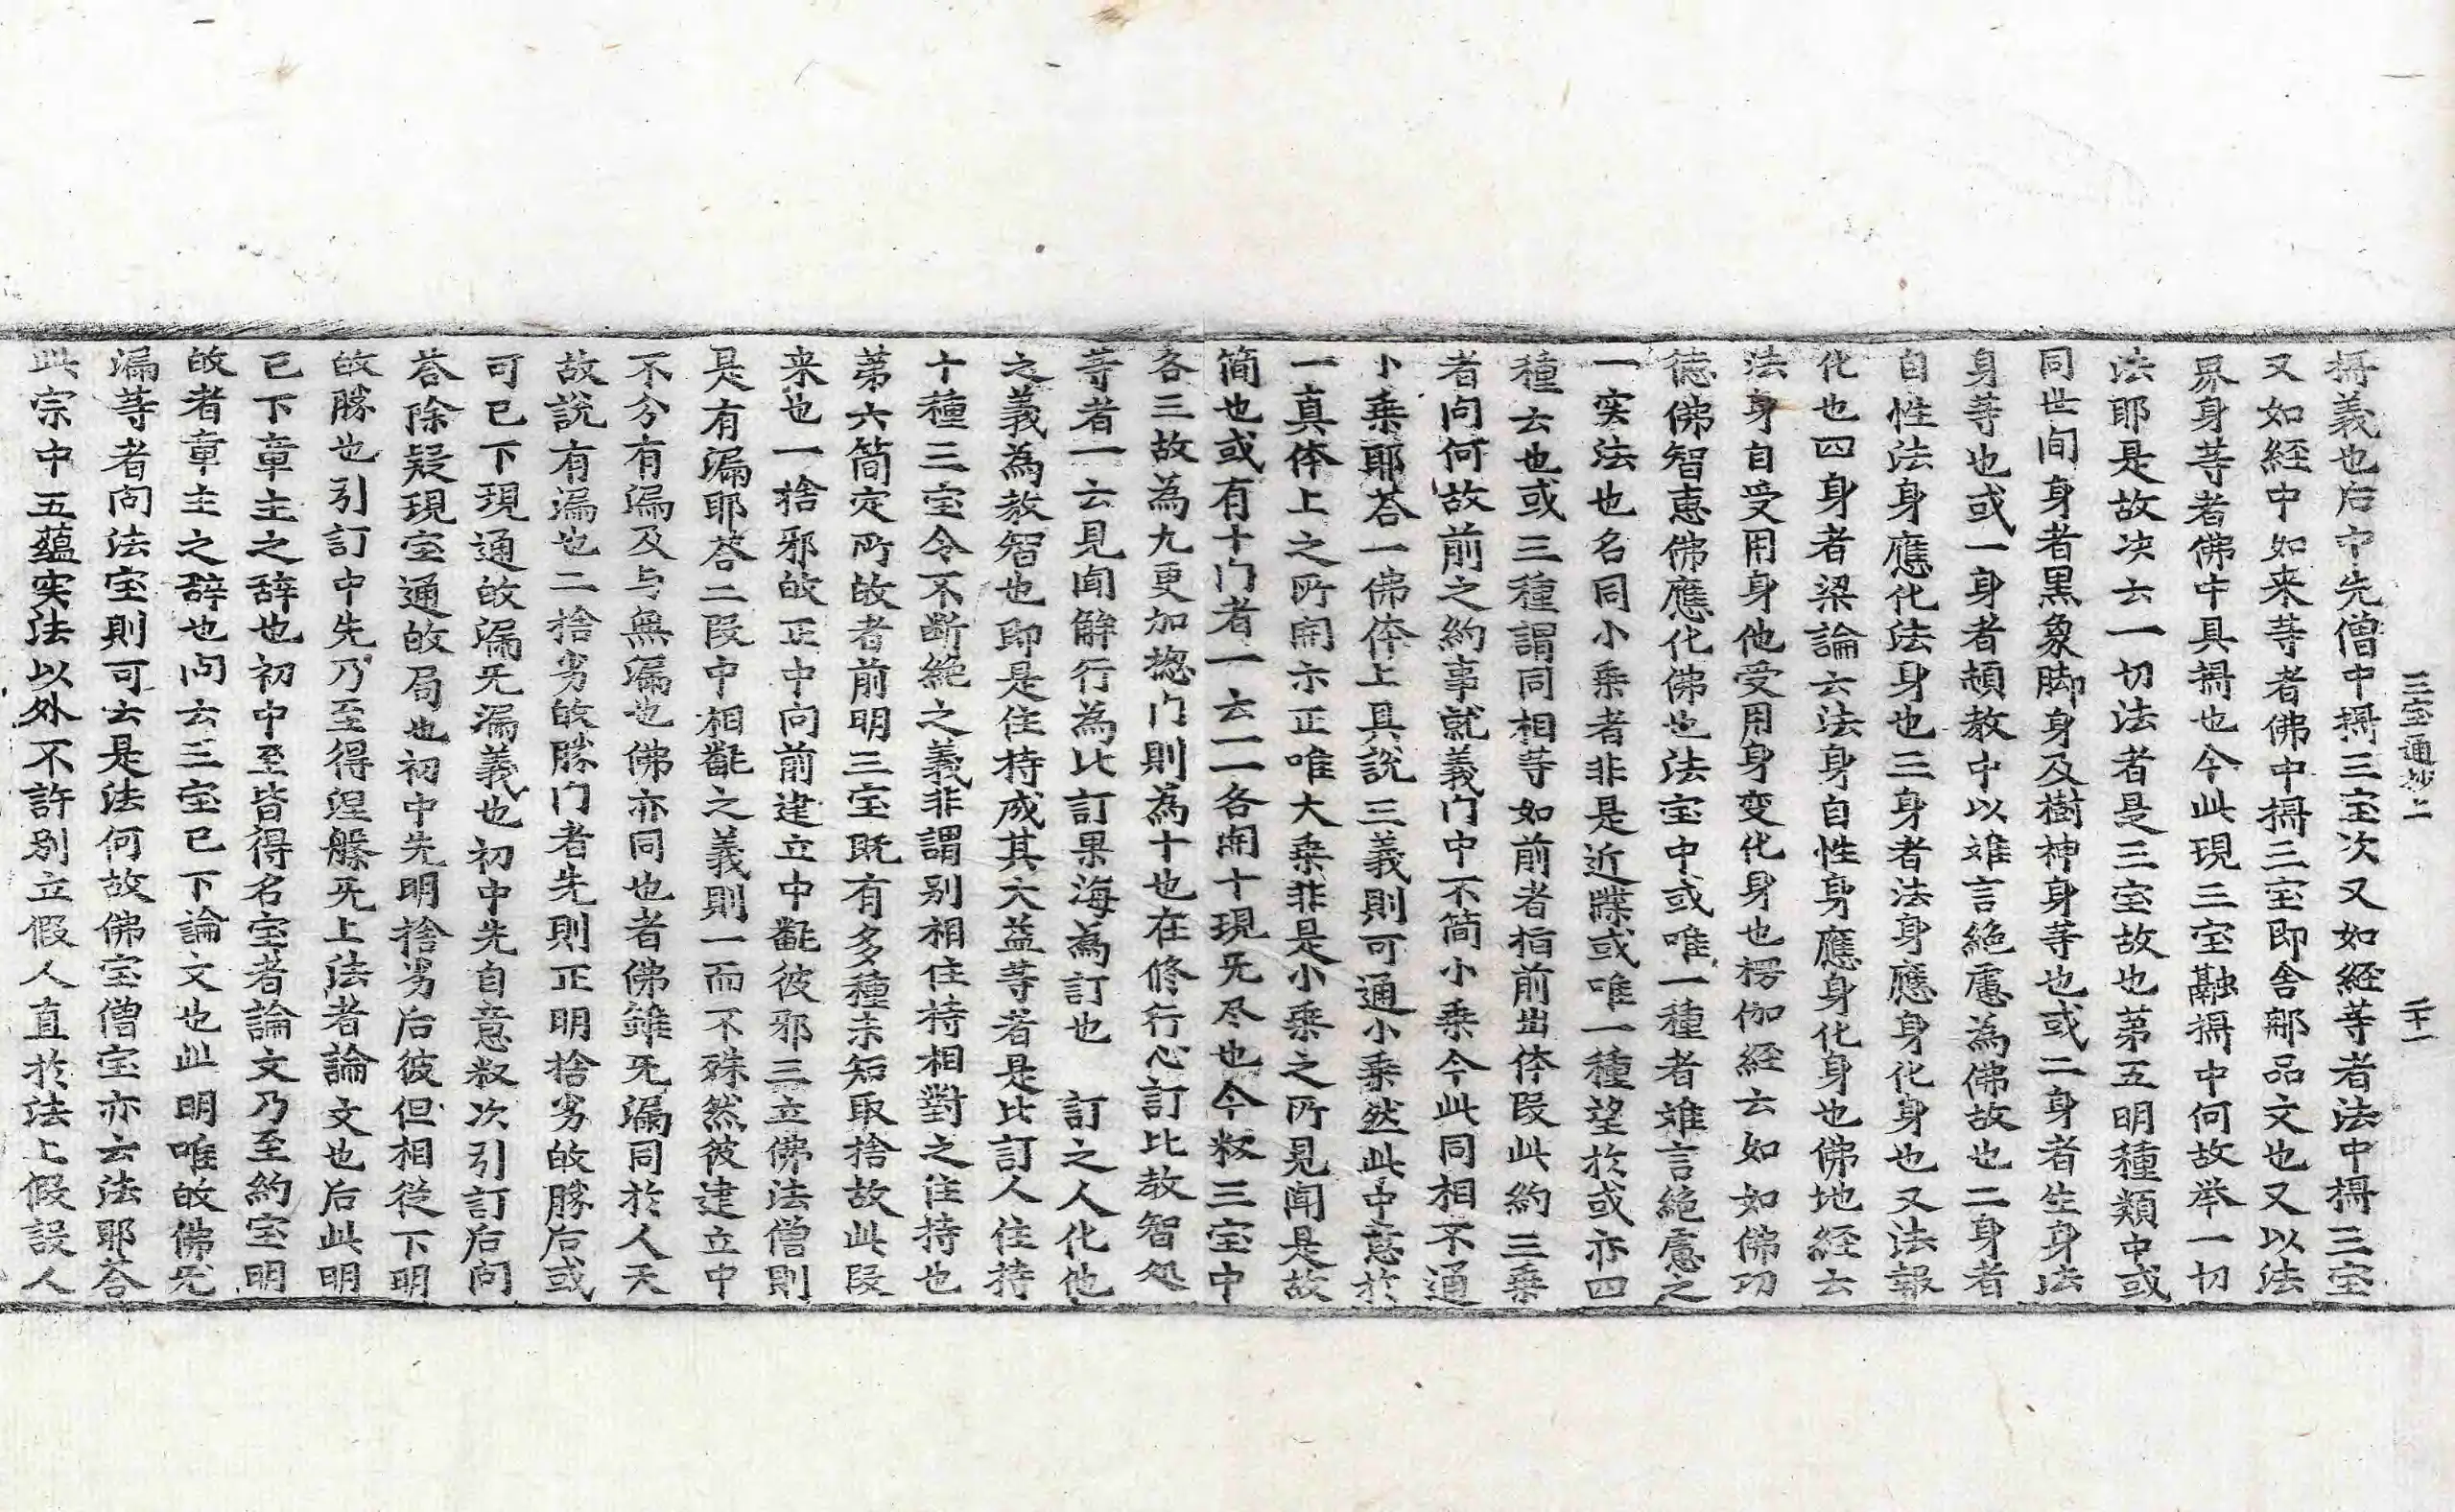 三宝通抄上 二十一
攝義也后中先僧中攝三宝次又如経䓁者法中攝三宝
又如経中如来䓁者佛中攝三宝即舎那品文也又以法
界身䓁者佛中具攝也今此現三宝融攝中何故举一切
法耶是故决云一切法者是三宝故也第五明種類中或
同世间身者黒象脚身及樹神身等也或二身者生身法
身䓁也或一身者頓教中以难言絶慮為佛故也二身者
自性法身應化法身也三身者法身應身化身也又法報
化也四身者梁論云法身自性身應身化身也佛地経云
法身自受用身他受用身变化身也楞伽経云如如佛功
德佛智恵佛應化佛也法宝中或唯一種者难言絶慮之
一实法也名同小乗者非是近牒或唯一種望於或亦四
種云也或三種謂同相等如前者指前出体段此約三乗
者问何故前之約事就義门中不简小乗今此同相不通
小乗耶荅一佛体上具説三義則可通小乗然此中意於
一真体上之所開示正唯大乗非是小乗之所見闻是故
简也或有十门者一云一一各開十現无尽也今叙三宝中
各三故為九更加揔门則為十也在修行心訂比教智処
䓁者一云見闻解行為比訂果海為訂也 訂之人化他
之義為教智也即是住持成其大益等者是比訂人住持
十種三宝令不断絶之義非謂别相住持相對之住持也
第六简定所敀者前明三宝既有多種未知取捨故此段
来也一捨邪敀正中向前建立中翻彼邪三立佛法僧則
是有漏耶荅二段中相翻之義則一而不殊然彼建立中
不分有漏及与無漏也佛亦同也者佛雖无漏同於人天
故説有漏也二捨劣敀勝门者先則正明捨劣敀勝后或
可已下現通敀漏无漏義也初中先自意叙次引訂后问
荅除疑現宝通敀局也初中先明捨劣后彼但相従下明
敀勝也引訂中先乃至得涅槃无上法者論文也后此明
已下章主之辞也初中至皆得名宝者論文乃至約宝明
敀者章主之辞也问云三宝已下論文也此明唯敀佛无
漏䓁者问法宝則可云是法何故佛宝僧宝亦云法耶荅
此宗中五蘊实法以外不許别立假人直於法上假説人